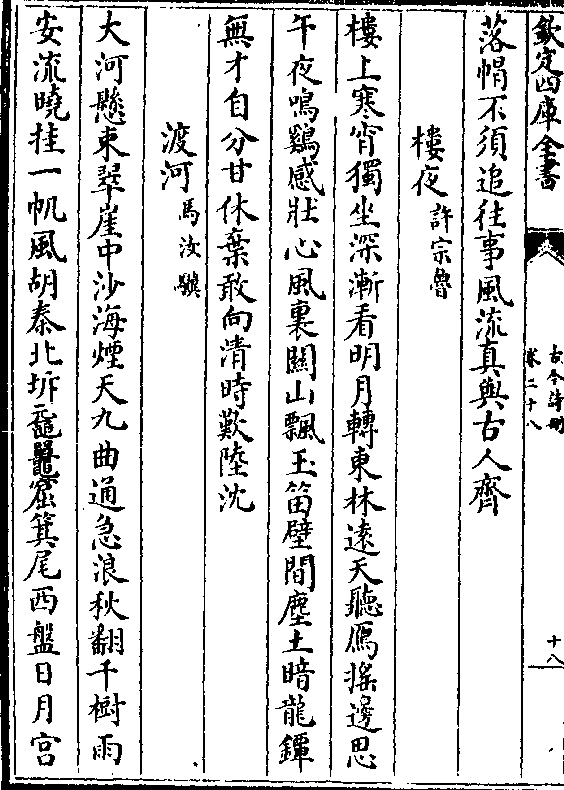 欽定四庫全書
古今詩刪
卷二十八
十八
落帽不須追往事風流真與古人齊
樓夜許宗魯
樓上寒宵獨坐深漸看明月轉東林遠天聽鴈搖邊思
午夜鳴鷄感壯心風裏關山飄玉笛壁間塵土暗龍鐔
無才自分甘休棄敢向清時歎陸沈
渡河馬汝驥
大河懸東翠崖中沙海煙天九曲通急浪秋翻千樹雨
安流曉挂一帆風胡秦北坼黿鼉窟箕尾西盤日月宮